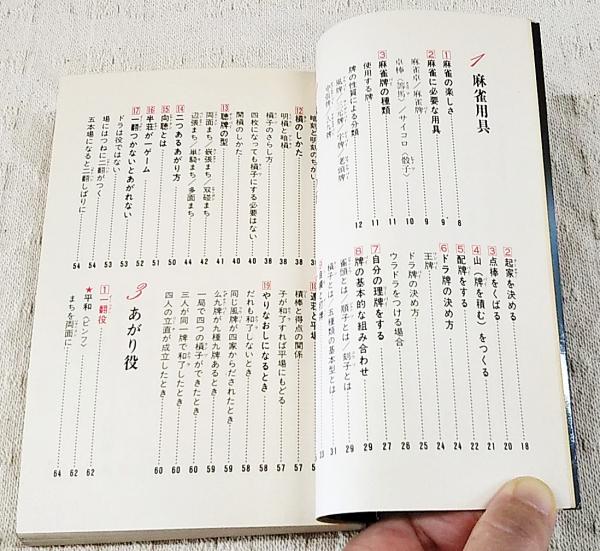 1 麻雀用具
1 麻雀の楽しさ 8
2 麻雀に必要な用具 9
麻雀卓/麻雀牌 9
点棒(籌馬)/サイコロ(骰子) 10
3 麻雀牌の種類 11
使用する牌 11
牌の性質による分類 12
2 起家を決める 18
3 点棒をくばる 20
4 山(牌を積む)をつくる 21
5 配牌をする 22
6 ドラ牌の決め方 24
王牌 24
ドラ牌の決め方 25
ウラドラをつける場合 26
7 自分の理牌をする 27
8 牌の基本的な組み合わせ 29
雀頭とは/順子とは/刻子とは 29
槓子とは/和了の基本型とは 31
暗刻と明刻のちがい
12 槓のしかた 38
明槓と暗槓 38
槓子のさらし方 40
四枚になっても槓子にする必要はない 40
開槓のしかた 40
13 聴牌の型 41
両面まち/嵌張まち/双碰まち 42
辺張まち/単騎まち/多面まち 44
14 二つあるあがり方 50
15 向聴とは 51
16 半荘が一ゲーム 52
17 一翻つかないとあがれない 53
ドラは役ではない 53
場にはつねに二翻がつく 54
五本場になると二翻しばりに 54
積棒と得点の関係 57
子が和了すれば平場にもどる 57
19 やりなおしになるとき 58
だれも和了しないとき 58
同じ風牌が四家からだされたとき 59
么九牌が九種九牌あるとき 59
一局で四つの槓子ができたとき 59
三人が同一牌で和了したとき 60
四人の立直が成立したとき 60
3 あがり役
1 一翻役 62
★平和(ピンフ) 62
まちを両面に 64